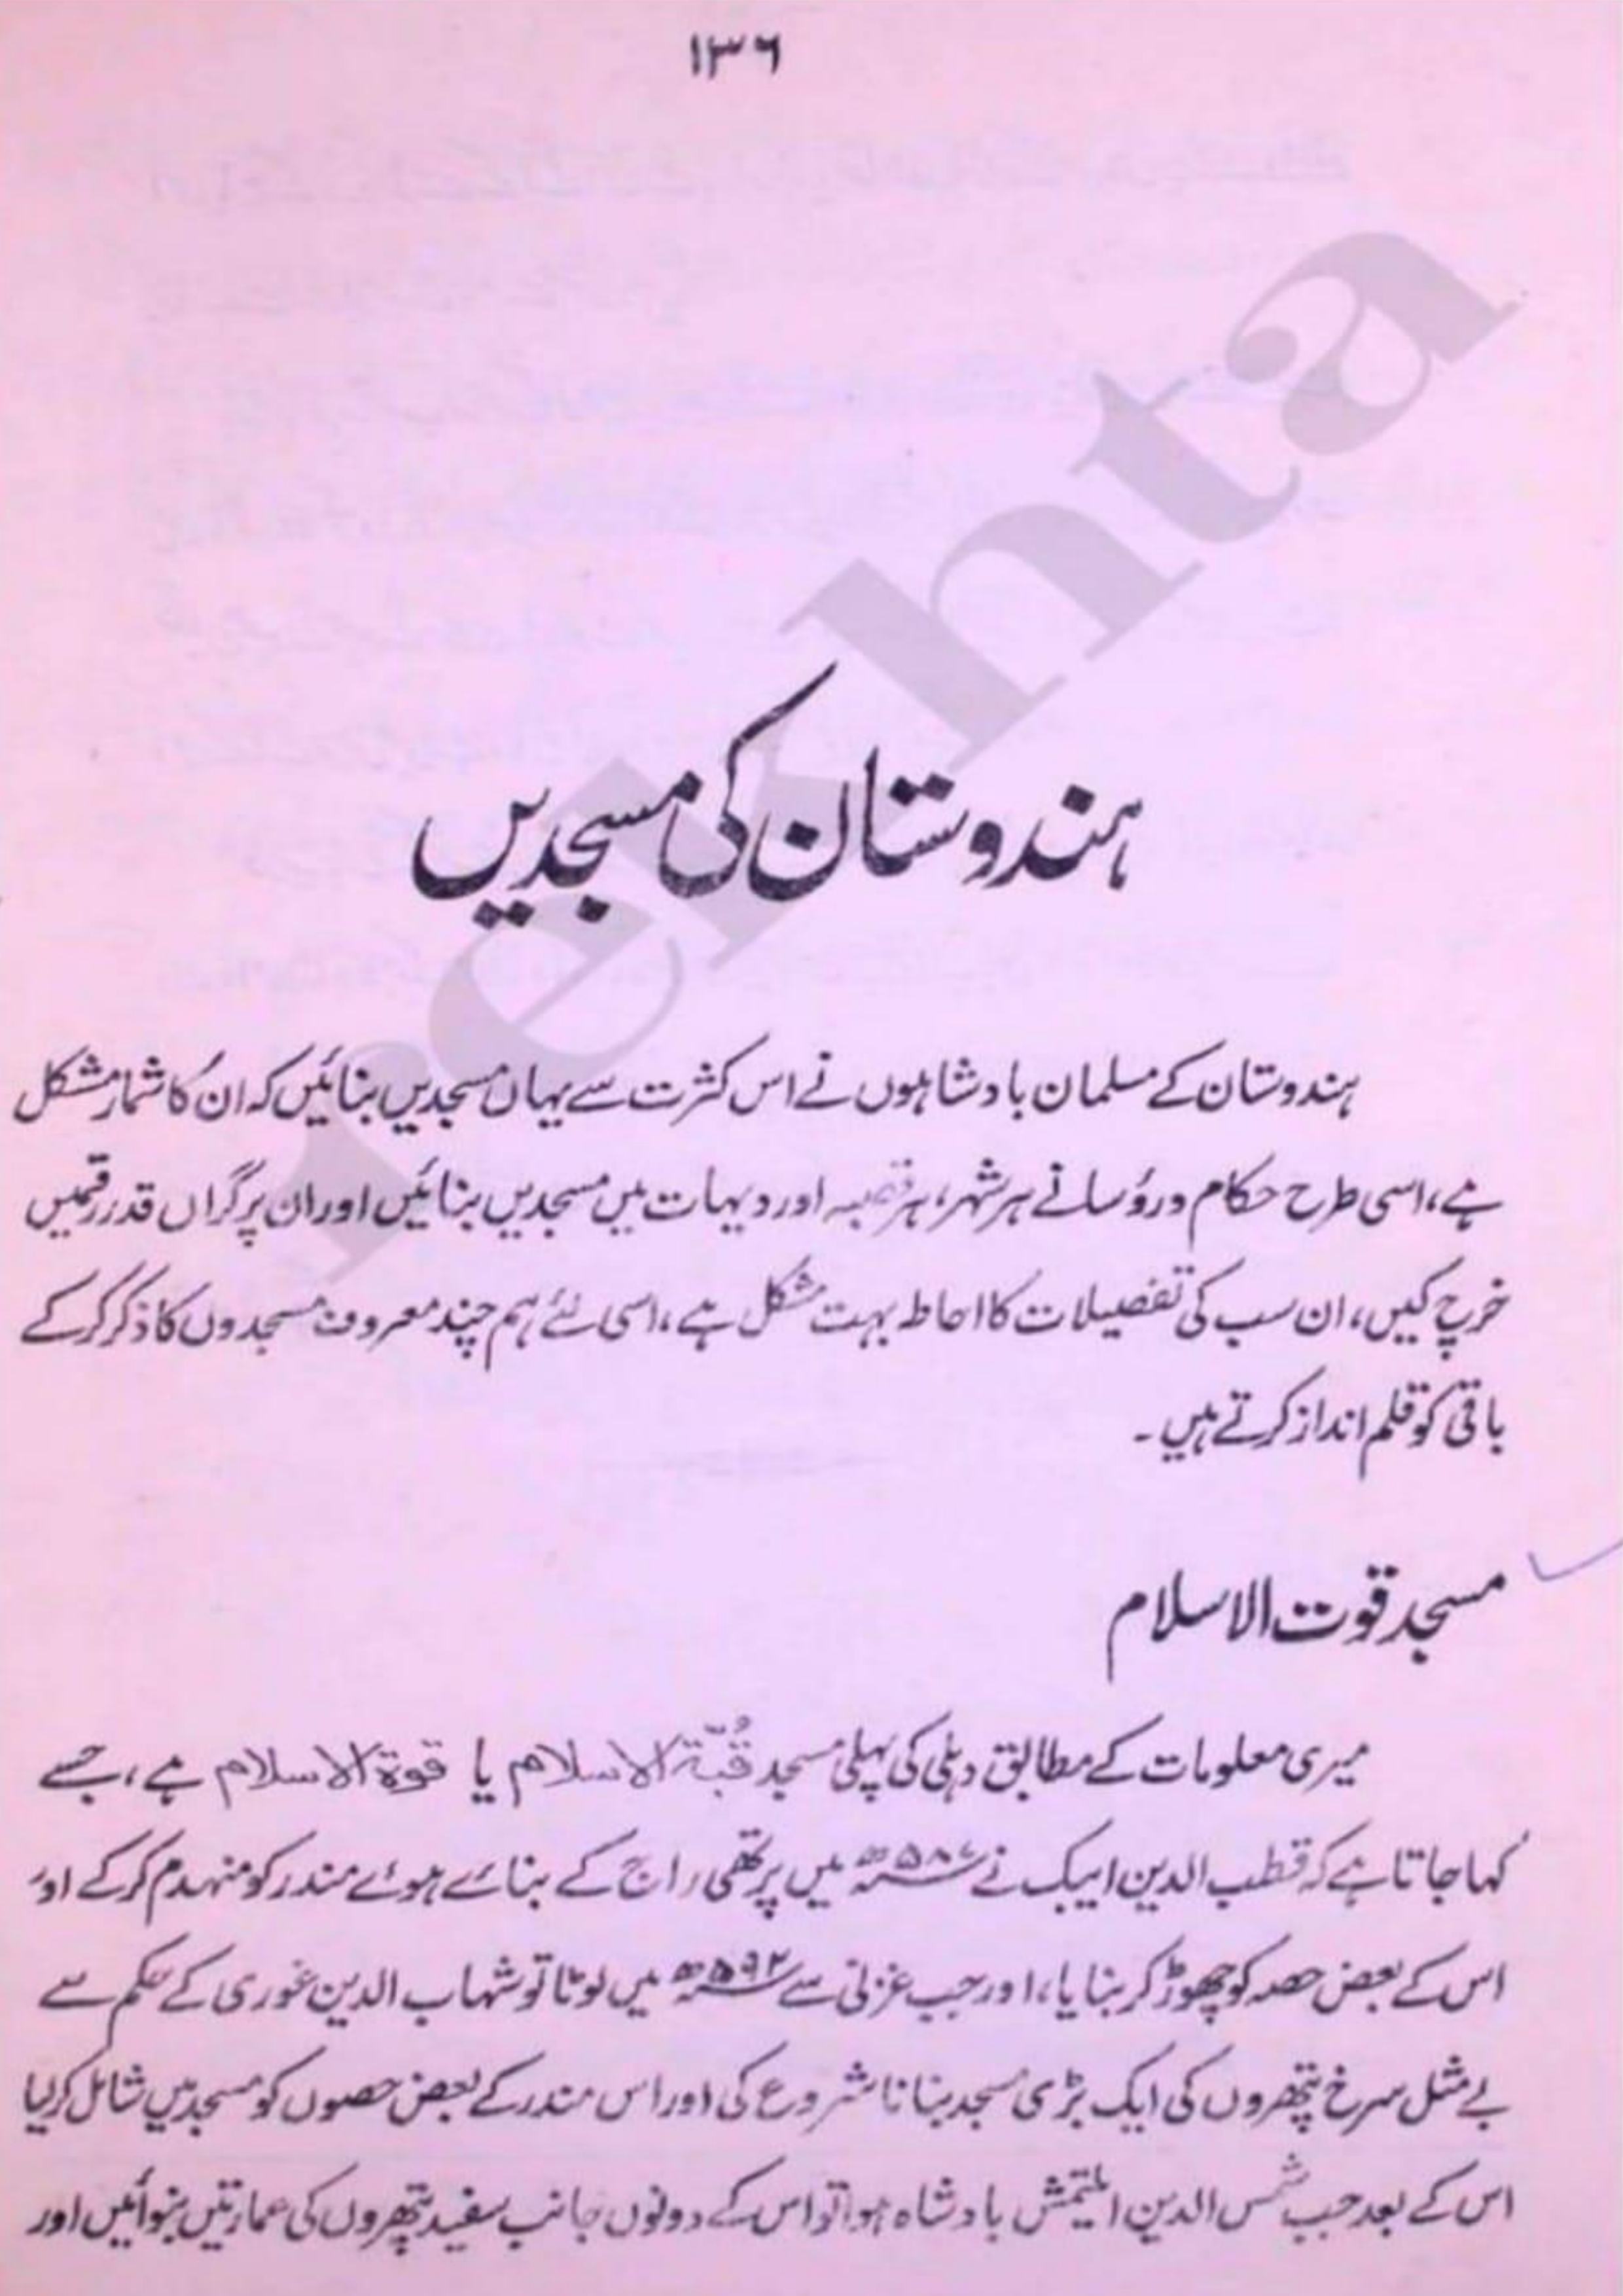 ۱۳۶
ہندوستان کی مسجدیں
ہندوستان کے مسلمان بادشاہوں نے اس کثرت سے یہاں مسجدیں بنائیں کہ ان کا شمار مشکل
ہے، اسی طرح حکام ورؤسا نے ہر شہر، ہر قصبہ اور دیہات میں مسجدیں بنائیں اور ان پر گراں قدر رقمیں
خرچ کیں، ان سب کی تفصیلات کا احاطہ بہت مشکل ہے، اسی لئے ہم چند معروف مسجدوں کا ذکر کرکے
باقی کو قلم انداز کرتے ہیں ۔
مسجد قوت الاسلام
میری معلومات کے مطابق دہلی کی پہلی مسجد قُبّۃ الاسلام یا قوۃ الاسلام ہے، جسے
کہا جاتا ہے کہ قطب الدین ایبک نے ۵۸۷ھ میں پرتھی راج کے بنائے ہوئے مندر کو منہدم کرکے اور
اس کے بعض حصہ کو چھوڑ کر بنایا، اور جب غزنی سے ۵۹۲ھ میں لوٹا تو شہاب الدین غوری کے حکم سے
بے مثل سرخ پتھروں کی ایک بڑی مسجد بنانا شروع کی اور اس مندر کے بعض حصوں کو مسجد میں شامل کرلیا
اس کے بعد جب شمس الدین ایلتمش بادشاہ ہوا تو اس کے دونوں جانب سفید پتھروں کی عمارتیں بنوائیں اور
rekhta